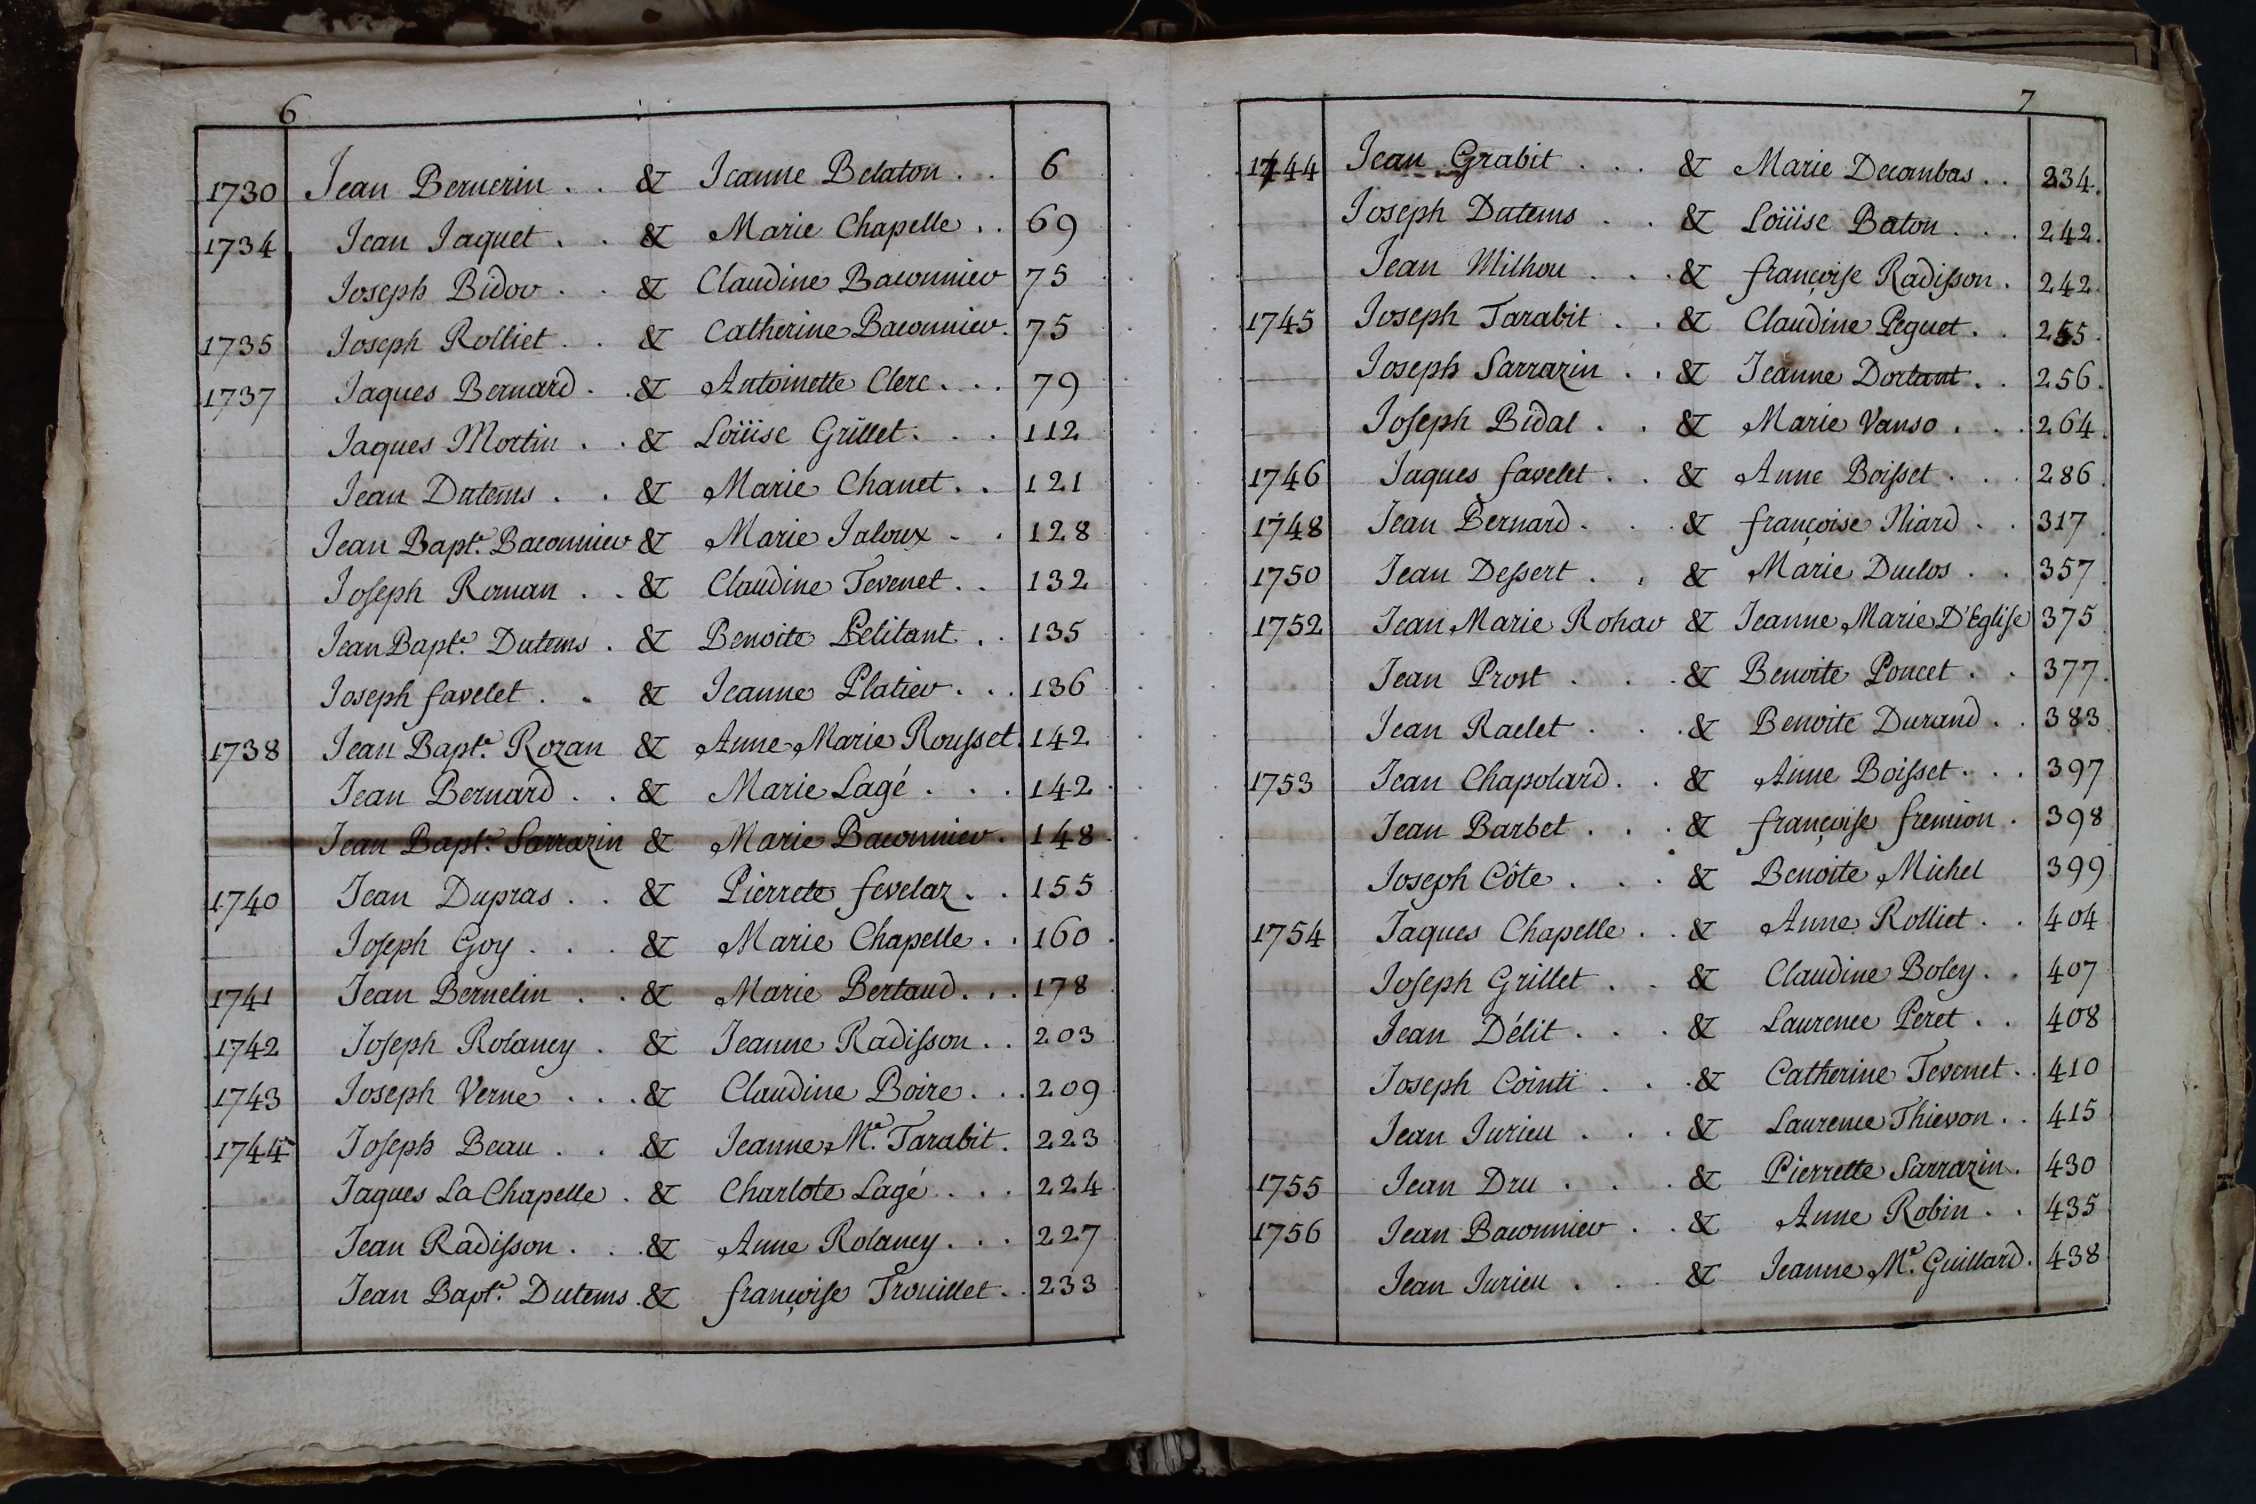 6
1730 Jean Bernerin . . & Jeanne Belaton . . 6
1734 Jean Jaquet . . & Marie Chapelle . . 69
Joseph Bidov . . & Claudine Baconniev 75
1735 Joseph Rolliet . . & Catherine Baconniev . 75
1737 Jaques Bernard . . & Antoinette Clerc . . . 79
Jaques Mortin . . & Loüise Grillet . . . 112
Jean Dutems . . & Marie Chanet . . 121
Jean Bapt.e Baconniev & Marie Jaloux . . 128
Joseph Roman . . & Claudine Tevenet . . 132
Jean Bapt.e Dutems . & Benoite Pelitant . . 135
Joseph favelet . . & Jeanne Platiev . . . 136
1738 Jean Bapt.e Rozan & Anne Marie Rousset . 142
Jean Bernard . . & Marie Lagé . . . 142 .
Jean Bapt.e Sarrazin & Marie Baconniev . 148 .
1740 Jean Dupras . . & Pierrete fevelaz . . 155
Joseph Goy . . . & Marie Chapelle . . 160 .
1741 Jean Bernelin . . & Marie Bertaud . . . 178
1742 Joseph Rolancy . & Jeanne Radisson . . 203
1743 Joseph Verne . . . & Claudine Boire . . . 209
1744 Joseph Beau . . . & Jeanne M.e Tarabit . 223
Jaques La Chapelle . & Charlote Lagé . . . 224
Jean Radisson . . . & Anne Rolancy . . . 227
Jean Bapt.e Dutems . & françoise Trouillet . . 233
7
1744 Jean Grabit . . . & Marie Decombas . . 234 .
Joseph Dutems . . & Loüise Baton . . . 242 .
Jean Milhou . . . & françoise Radisson . 242 .
1745 Joseph Tarabit . . & Claudine Peguet . . 255 .
Joseph Sarrazin . . & Jeanne Dortant . . 256 .
Joseph Bidal . . & Marie Vanso . . . 264 .
1746 Jaques favelet . . & Anne Boisset . . . 286 .
1748 Jean Bernard . . . & françoise Niard . . 317 .
1750 Jean Dessert . . & Marie Duclos . . 357 .
1752 Jean Marie Rohav & Jeanne Marie D'Eglise 375
Jean Prost . . . & Benoite Poncet . . 377 .
Jean Raclet . . . & Benoite Durand . . 383
1753 Jean Chapolard . . & Anne Boisset . . . 397
Jean Barbet . . . & françoise fremion . 398
Joseph Côte . . . & Benoite Michel 399
1754 Jaques Chapelle . . & Anne Rolliet . . 404
Joseph Grillet . . & Claudine Boley . . 407
Jean Délit . . . & Laurence Peret . . 408
Joseph Cointi . . . & Catherine Tevenet . . 410
Jean Jurieu . . . & Laurence Thievon . . 415
1755 Jean Dru . . . & Pierrette Sarrazin . 430
1756 Jean Baconniev . . & Anne Robin . . 435
Jean Jurieu . . . & Jeanne M.e Guillard . 438